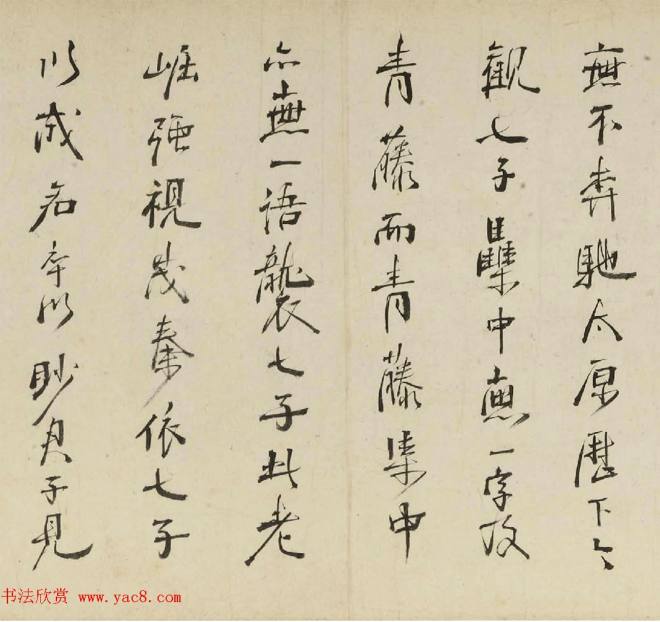 無不奔馳太原歷下今
觀七子集中無一字攻
青藤而青藤集中
亦無一語襲七子此老
崛强視茂秦依七子
以成名卒以眇君子見
书法欣赏 www.yac8.com